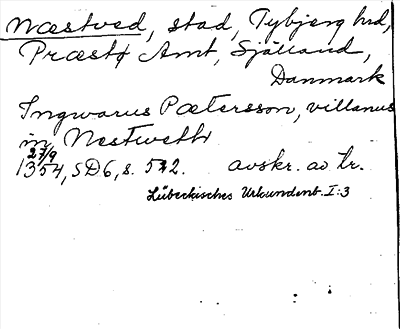 Næstved, stad, Tybjerg hrd,
Præstø Amt, Själland,
Danmark
Ingwarus Pætersson, villanus
in Nestweth
27/9
1354, SD6, s. 512. avskr. av tr.
Lübeckisches Urkundenb. I:3